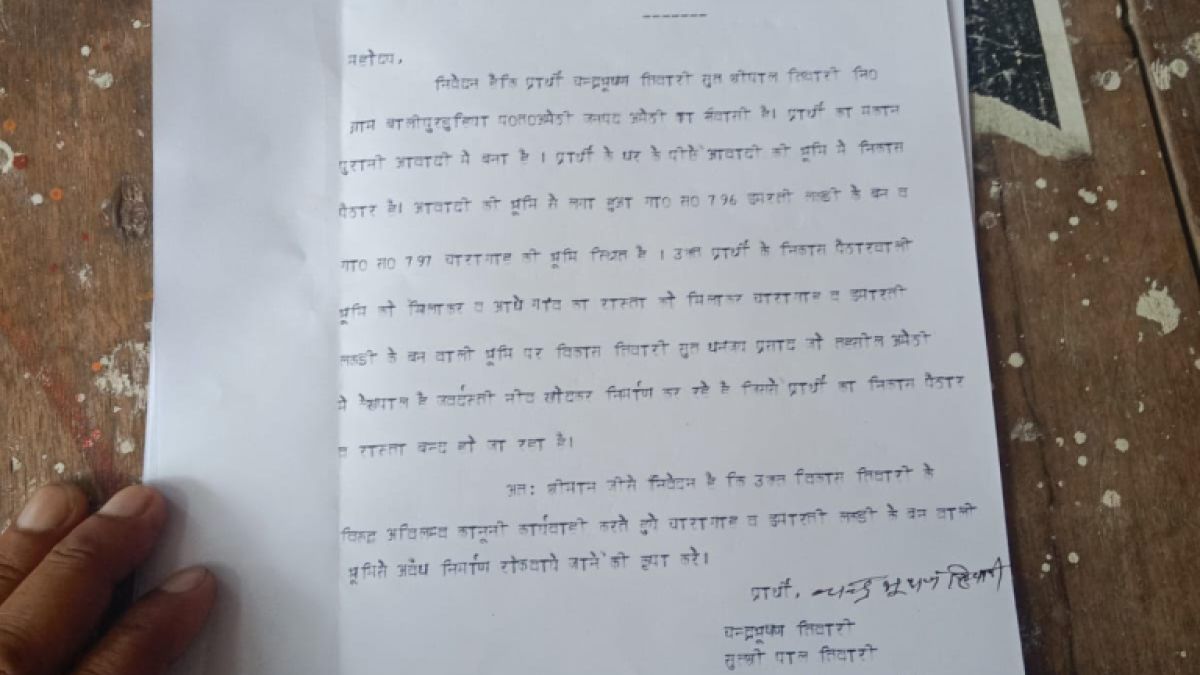 -------
महोदय,
निवेदन हैकि प्रार्थी चन्द्रभूषण तिवारी सुत श्रीपाल तिवारी नि0
ग्राम बालीपुरखुर्दवा प0त0अमेठी जनपद अमेठी का स्वासी है। प्रार्थी का मकान
पुरानी आवादी मे बना है । प्रार्थी के घर के पीछे आवादी की भूमि मे निकास
पैठार है। आवादी की भूमि से लगा हुआ गा0 स0 796 इमरती लकडी के बन व
गा0 स0 797 चारागाह की भूमि स्थित है । उक्त प्रार्थी के निकास पैठारवाली
भूमि को मिलाकर व आधे गांव का रास्ता को मिलाकर चारागाह व इमारती
लकडी के बन वाली भूमि पर विकास तिवारी सुत प्रसाद जो तहसील अमेठी
मे है जबर्दस्ती नीव खोदकर निर्माण कर रहे है जिससे प्रार्थी का निकास पैठार
व रास्ता बन्द हो जा रहा है।
अत: श्रीमान जीसे निवेदन है कि उक्त विकास तिवारी के
विरूद्ध अविलम्ब कानूनी कार्यवाही करते हुये चारागाह व इमारती लकडी के बन वाली
भूमिसे अवैध निर्माण रोकवाये जाने की कृपा करे।
प्रार्थी, चन्द्र भूषण तिवारी
चन्द्रभूषण तिवारी
सुतश्री पाल तिवारी